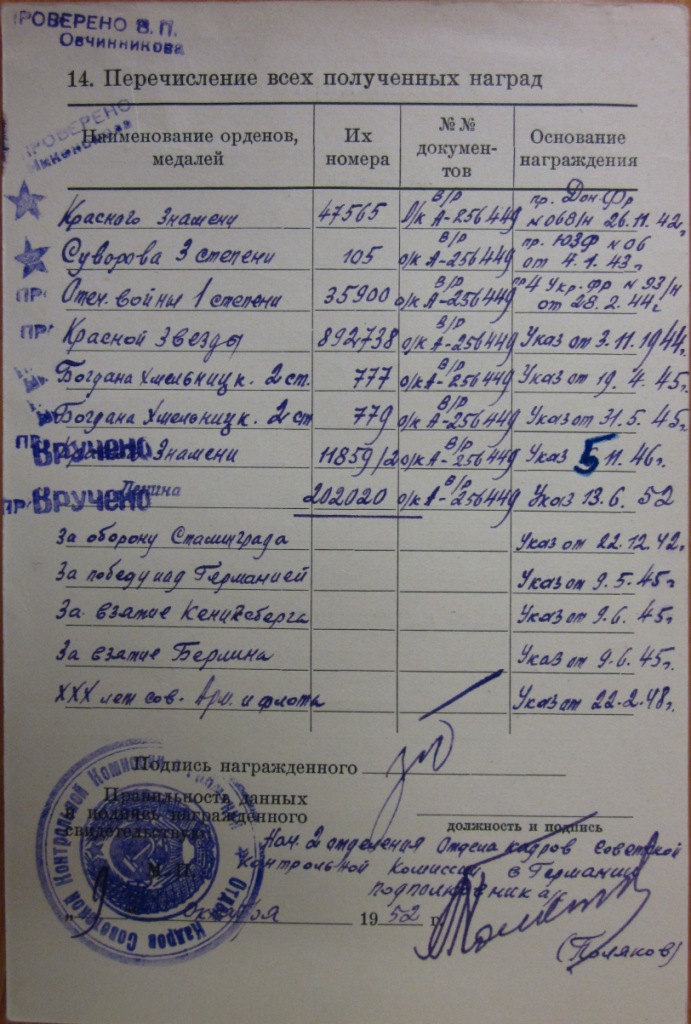 ПРОВЕРЕНО В. П.
Овчинникова
14. Перечисление всех полученных наград
ПРОВЕРЕНО
Наименование орденов, медалей
Их номера
№№ документов
Основание награждения
Красного Знамени 47565 В/р О/к А-256449 пр. Дон. Фр №068/н 26.11.42г.
Суворова 3 степени 105 В/р о/к А-256449 пр. ЮЗФ №06 от 4.1.43г.
Отеч. войны 1 степени 35900 В/р о/к А-256449 пр 4 Укр. Фр №93/н от 28.2.44г
Красной Звезды 892738 В/р о/к А-256449 Указ от 3.11.1944г.
Богдана Хмельницк. 2 ст. 777 В/р о/к А-256449 Указ от 19.4.45г.
Богдана Хмельницк. 2 ст 779 В/р о/к А-256449 Указ от 31.5.45г.
Вручено Знамени 11859/2 В/р о/к А-256449 Указ 5 11.46г.
Вручено Ленина 202020 В/р о/к А-256449 Указ 13.6.52
За оборону Сталинграда Указ от 22.12.42г.
За победу над Германией Указ от 9.5.45г.
За взятие Кенигсберга Указ от 9.6.45г.
За взятие Берлина Указ от 9.6.45г.
XXX лет сов. Арм. и флота Указ от 22.2.48г.
Подпись награжденного
Правильность данных
и подпись награжденного
свидетельствую
должность и подпись
Нач. 2 отделения Отдела кадров Советской
контрольной Комиссии в Германии
подполковник
М. П.
„9 октября 1952 г.
(Поляков)
Отдел Кадров Советской Контрольной Комиссии